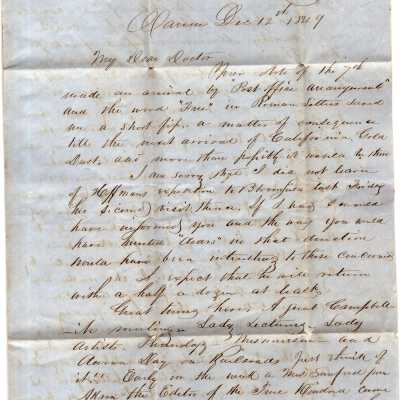 Dec 12th 1849
My Dear Doctor
Your Note of the 7th
made an arrival by "Post office arrangement"
and the word "Free" in Roman Letters saved
me a short fip, a matter of consequence
till the next arrival of California Gold
Dust, and more than possibly it would be then
I am sorry that I did not learn
of Hoffmans expedition to last Friday
his second visit there. If I had I would
have informed you and the way you would
have hunted "Acars" in that direction
would have been
I expect that he will return
with a half a dozen at least.
Great times here. A great Campbell-
-ite meeting - Lady Lectures - Lady
Artists Phrenology - Mesmerism - and
on Railroads Just think of
it!! Early in the week a Mr
from the Editor of the True Kindred came